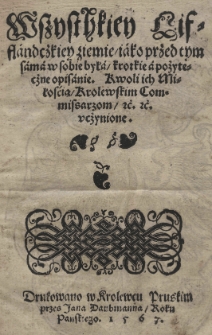 Wszysthkiey Lif-
flandczkiey ziemie / iako przed tym
sama w sobie była / krotkie a pożyte-
czne opisanie. Kwoli ich Mi-
łościa / Krolewskim Com-
missarzom / ꝛc. ꝛc.
vczynione.
Drukowano w Krolewcu Pruskim
przez Jana Daubmanna / Roku
Pańskiego. 1 5 6 7.